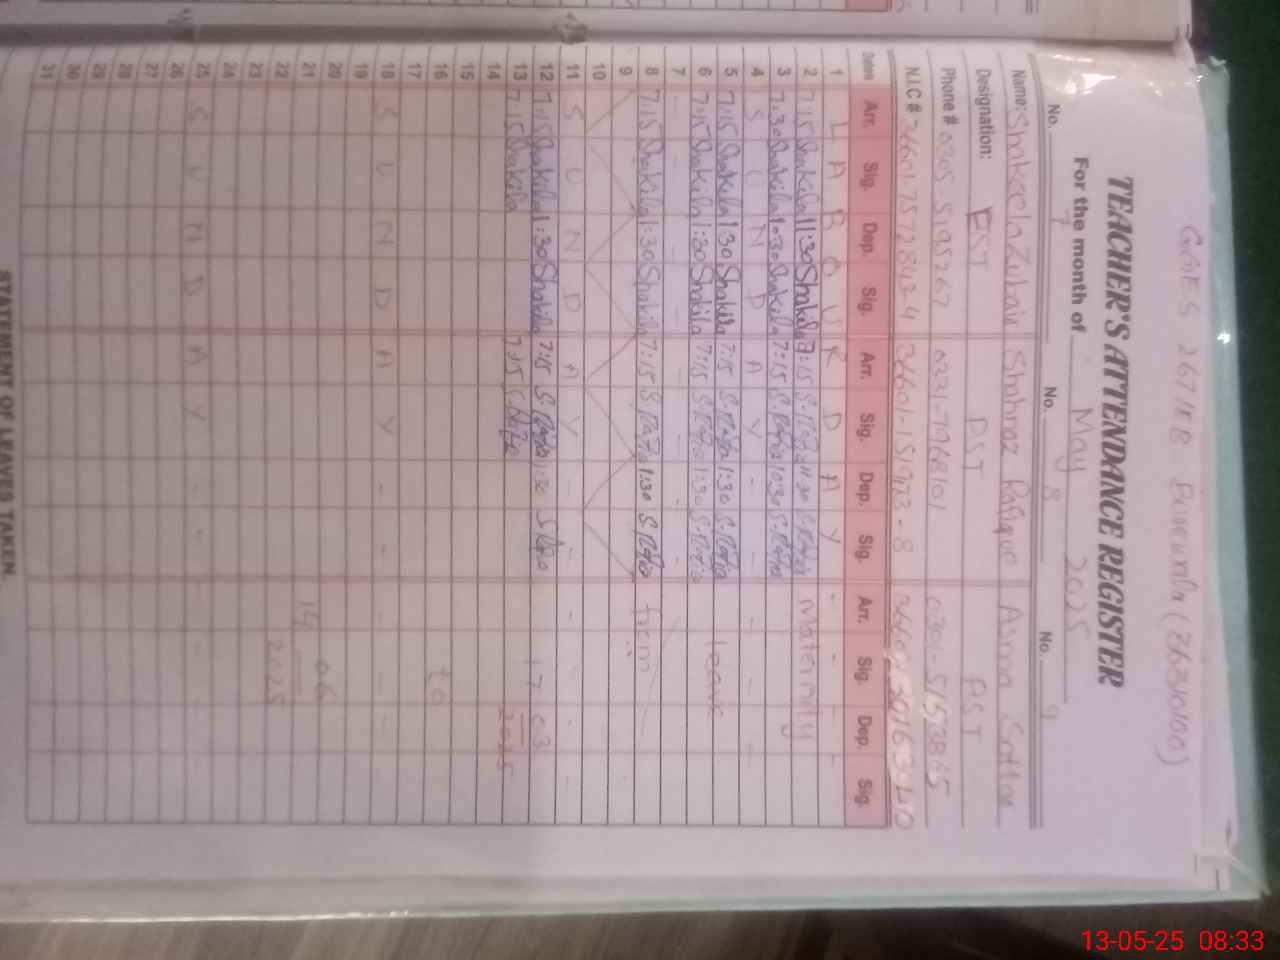 GGES 267/EB
TEACHER'S ATTENDANCE REGISTER
For the month of May 2025
No. 7 No. 8 No. 9
Name: Shakeela Zubair Shahnaz Rafique Asma Sattar
Designation: PST PST
Phone # 0305-5195267 0331-7968101
N.I.C #
Dates Arr. Sig. Dep. Sig. Arr. Sig. Dep. Sig. Arr. Sig. Dep. Sig.
1 L A B O U R D A Y - - - -
2 7:15 Shakila 11:30 Shakila 7:15 S.Rafia 11:30 S.Rafia Maternity
3 7:30 Shakila 10:30 Shakila 7:15 S.Rafia 10:30 S.Rafia
4 S U N D A Y - - - - -
5 7:15 Shakila 1:30 Shakila 7:15 S.Rafia 1:30 S.Rafia leave
6 7:15 Shakila 1:30 Shakila 7:15 S.Rafia 1:30 S.Rafia
7
8 7:15 Shakila 1:30 Shakila 7:15 S.Rafia 1:30 S.Rafia from
9
10
11 S U N D A Y - - - - -
12 7:15 Shakila 1:30 Shakila 7:15 S.Rafia 1:30 S.Rafia 17 03
13 7:15 Shakila 7:15 S.Rafia 2025
14
15
16 to
17
18 S U N D A Y - - - - -
19
20
21 14 06
22 2025
23
24
25 S U N D A Y - -
26
27
28
29
30
31
STATEMENT OF LEAVES TAKEN
13-05-25 08:33